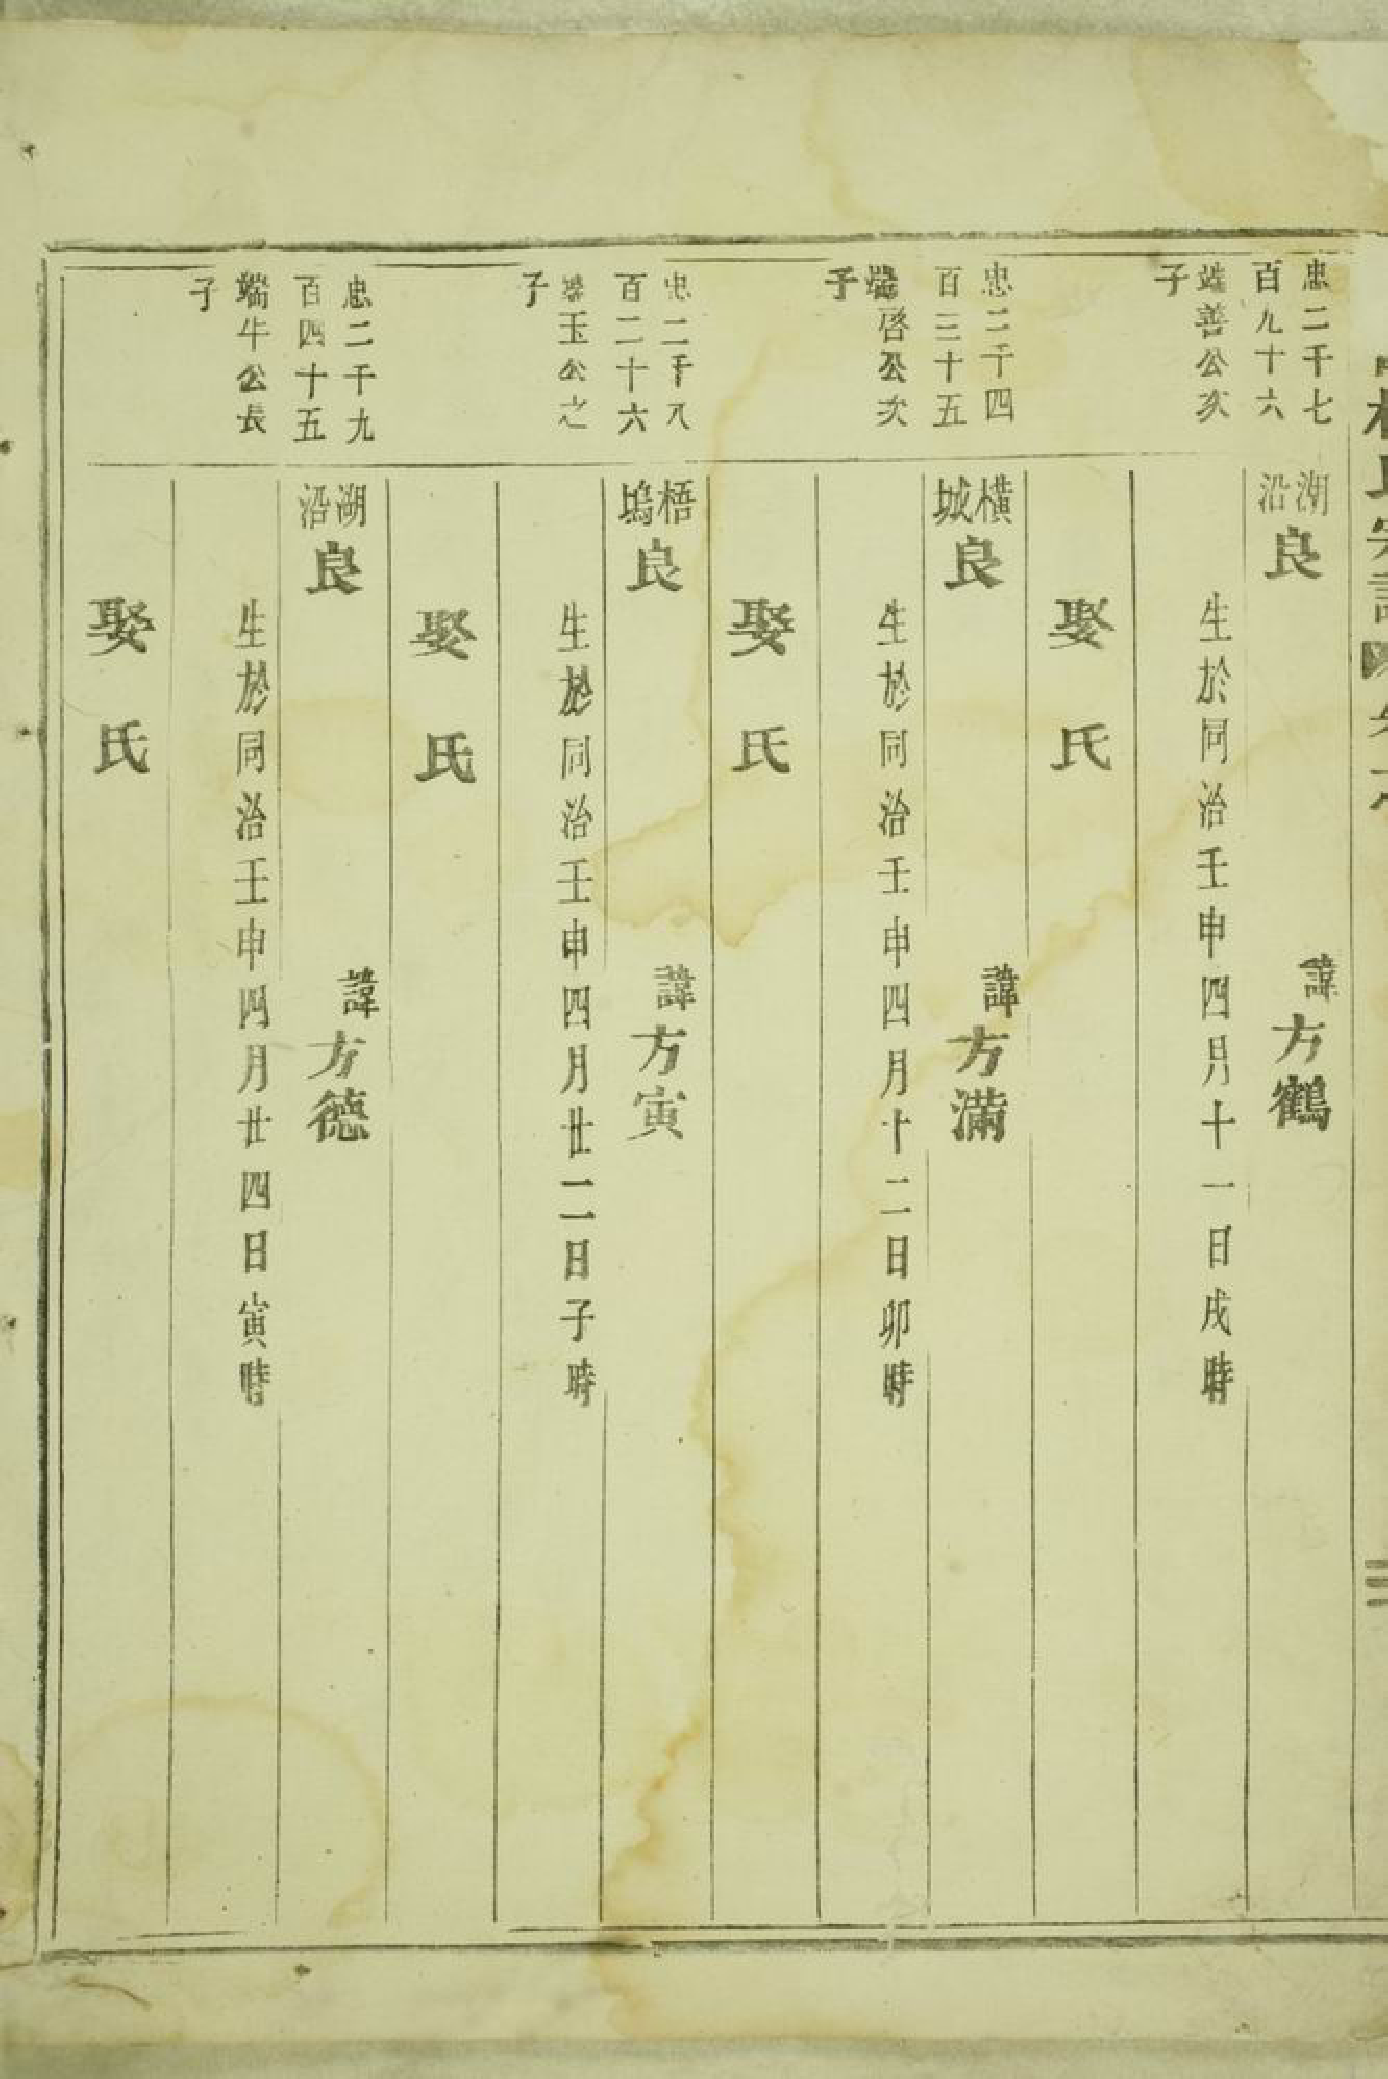 忠二千七
百九十六
端善公次
子
湖
沿
良
諱方鶴
生於同治壬申四月十一日戌時
娶氏
忠二千四
百三十五
端啓公次
子
橫
城
良
諱方滿
生於同治壬申四月十二日卯時
娶氏
忠二千八
百二十六
端玉公之
子
梧
塢
良
諱方寅
生於同治壬申四月廿二日子時
娶氏
忠二千九
百四十五
端牛公長
子
湖
沿
良
諱方德
生於同治壬申四月廿四日寅時
娶氏